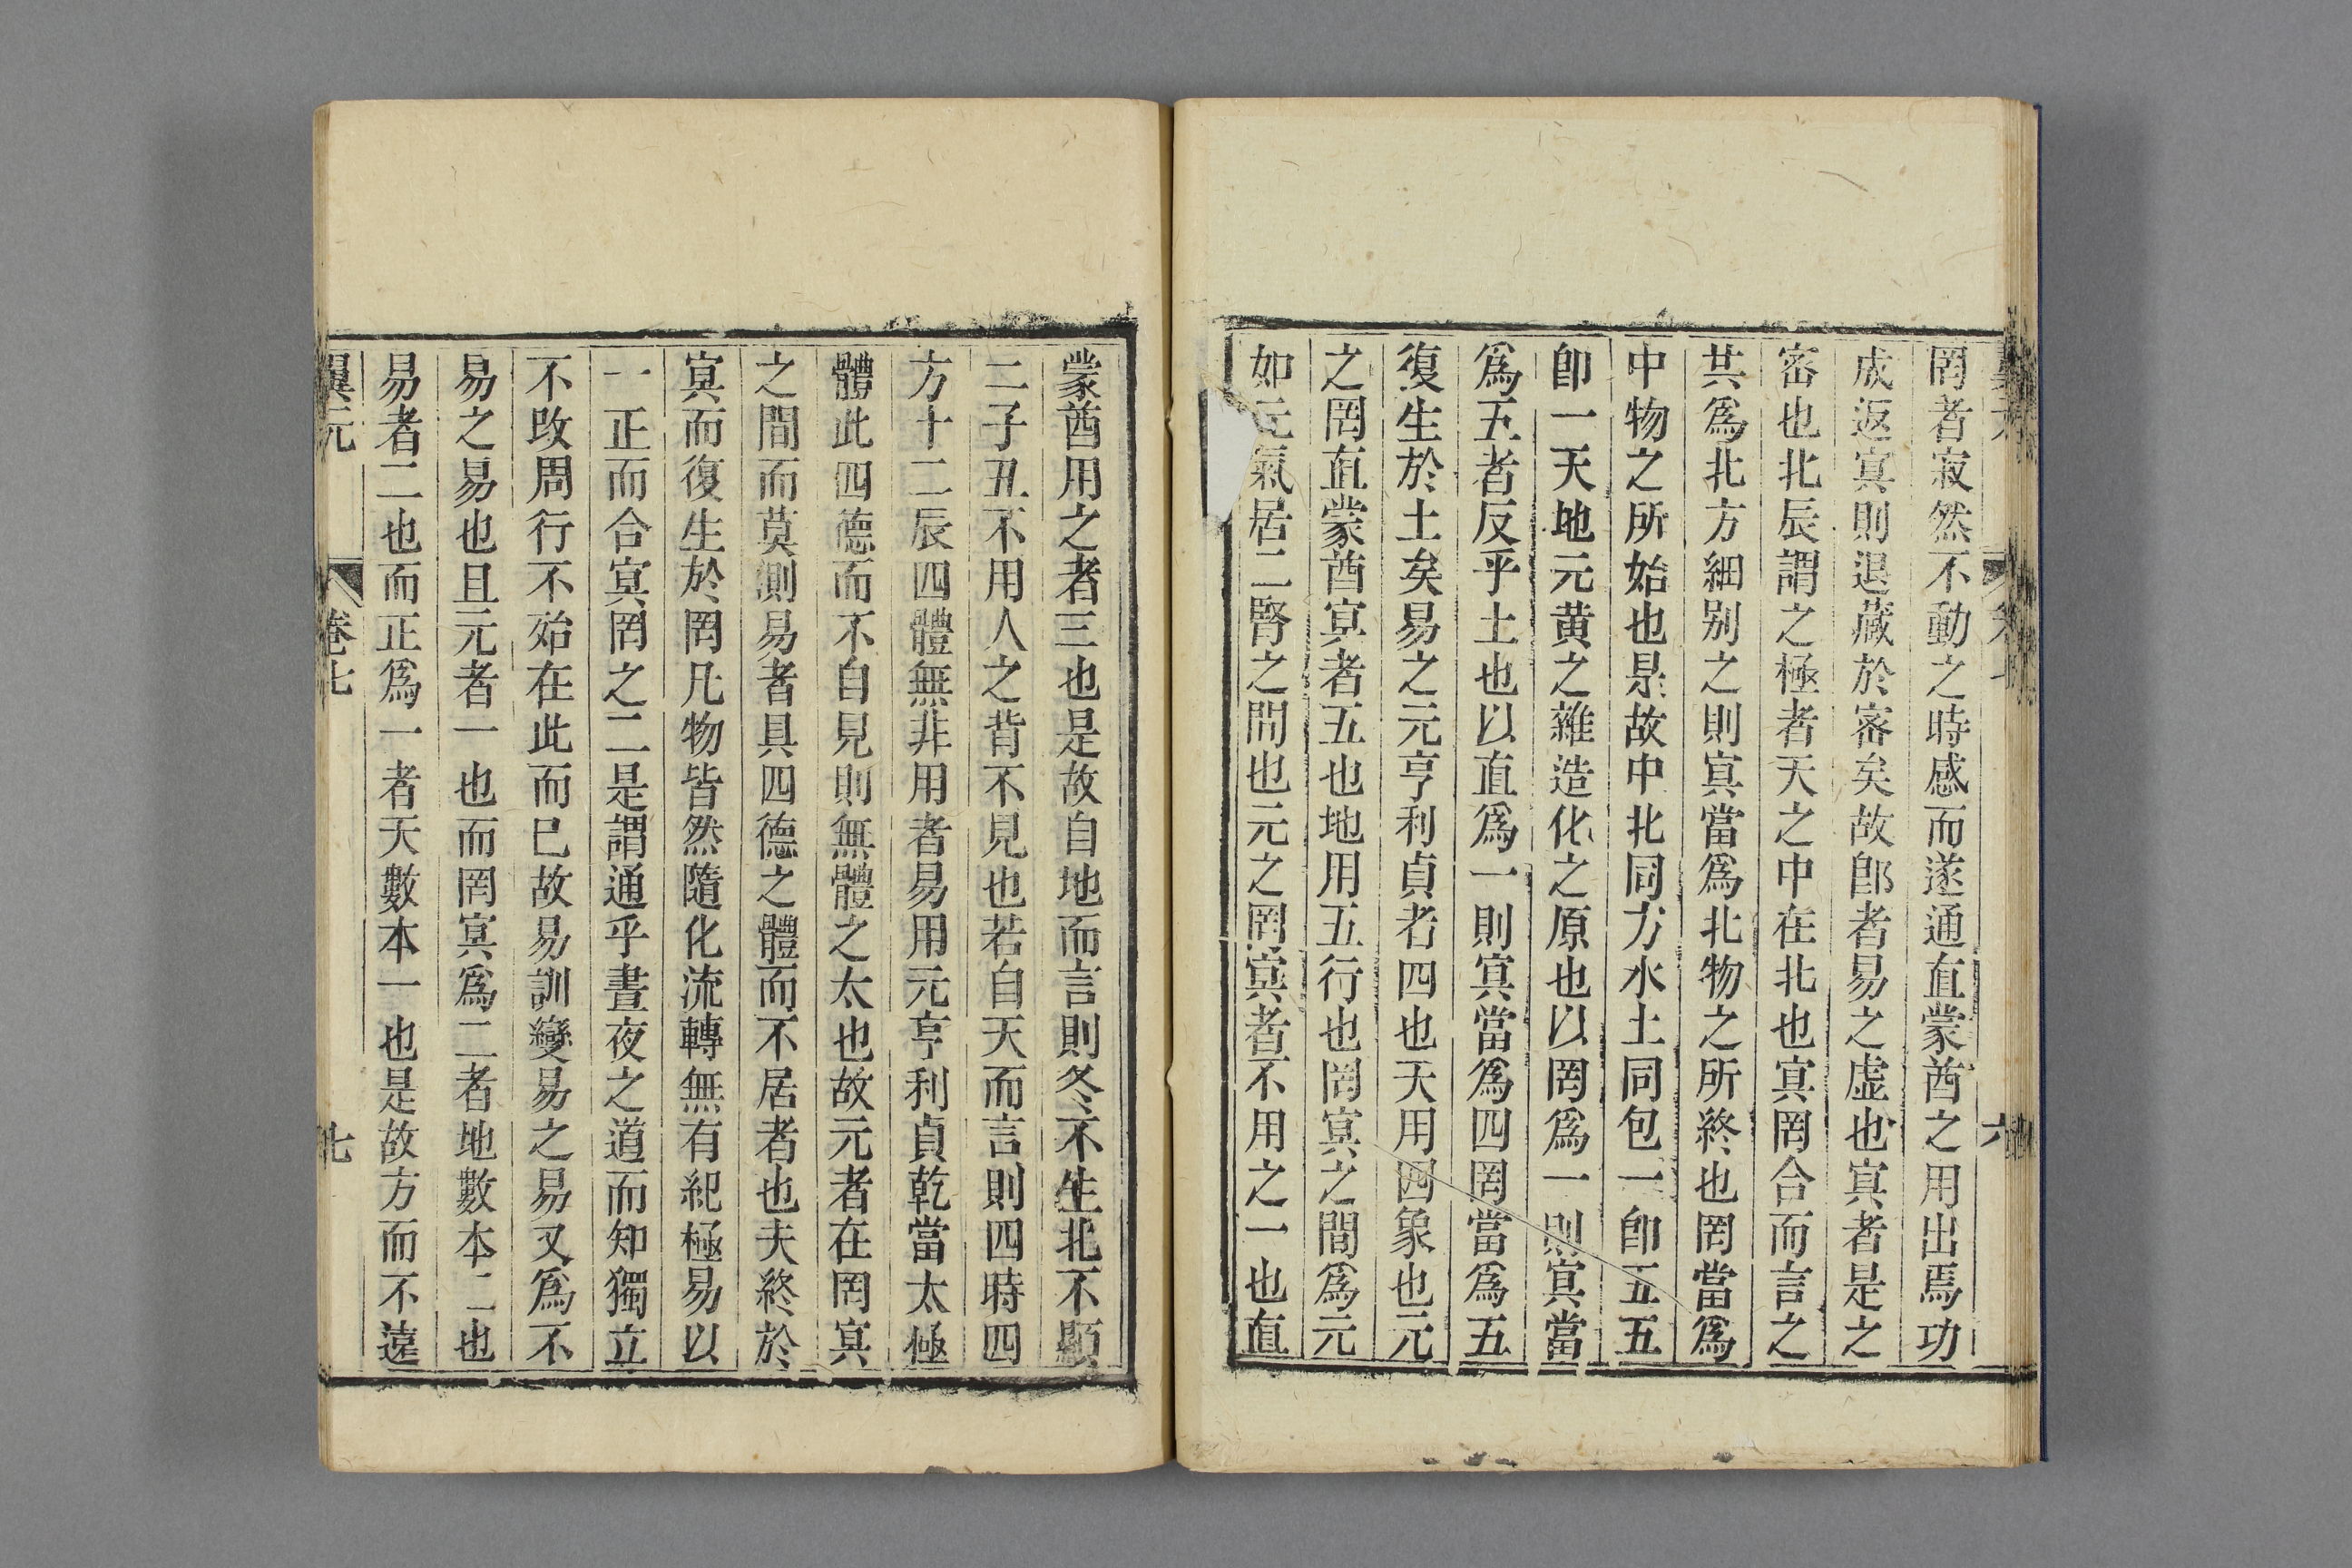 罔者寂然不動之時感而遂通直蒙酋之用出焉功
成返冥則退藏於密矣故郎者易之虛也冥者是之
密也北辰謂之極者天之中在北也冥罔合而言之
共爲北方細別之則冥當爲北物之所終也罔當爲
中物之所始也是故中北同方水土同包一卽五五
卽一天地元黄之雜造化之原也以罔爲一則冥當
爲五者反乎土也以直爲一則冥當爲四罔當爲五
復生於土矣易之元亨利貞者四也天用四象也元
之罔直蒙酋冥者五也地用五行也罔冥之間爲元
如元氣居二腎之間也元之罔冥者不用之一也直
蒙酋用之者三也是故自地而言則冬不生北不顯
二子丑不用人之背不見也若自天而言則四時四
方十二辰四體無非用者易用元亨利貞乾當太極
體此四德而不自見則無體之太也故元者在罔冥
之間而莫測易者具四德之體而不居者也夫終於
冥而復生於罔凡物皆然隨化流轉無有紀極易以
一正而合冥罔之二是謂通乎晝夜之道而知獨立
不改周行不殆在此而已故易訓變易之易又爲不
易之易也且元者一也而罔冥爲二者地數本二也
易者二也而正爲一者天數本一也是故方而不遠
翼元 卷七 七